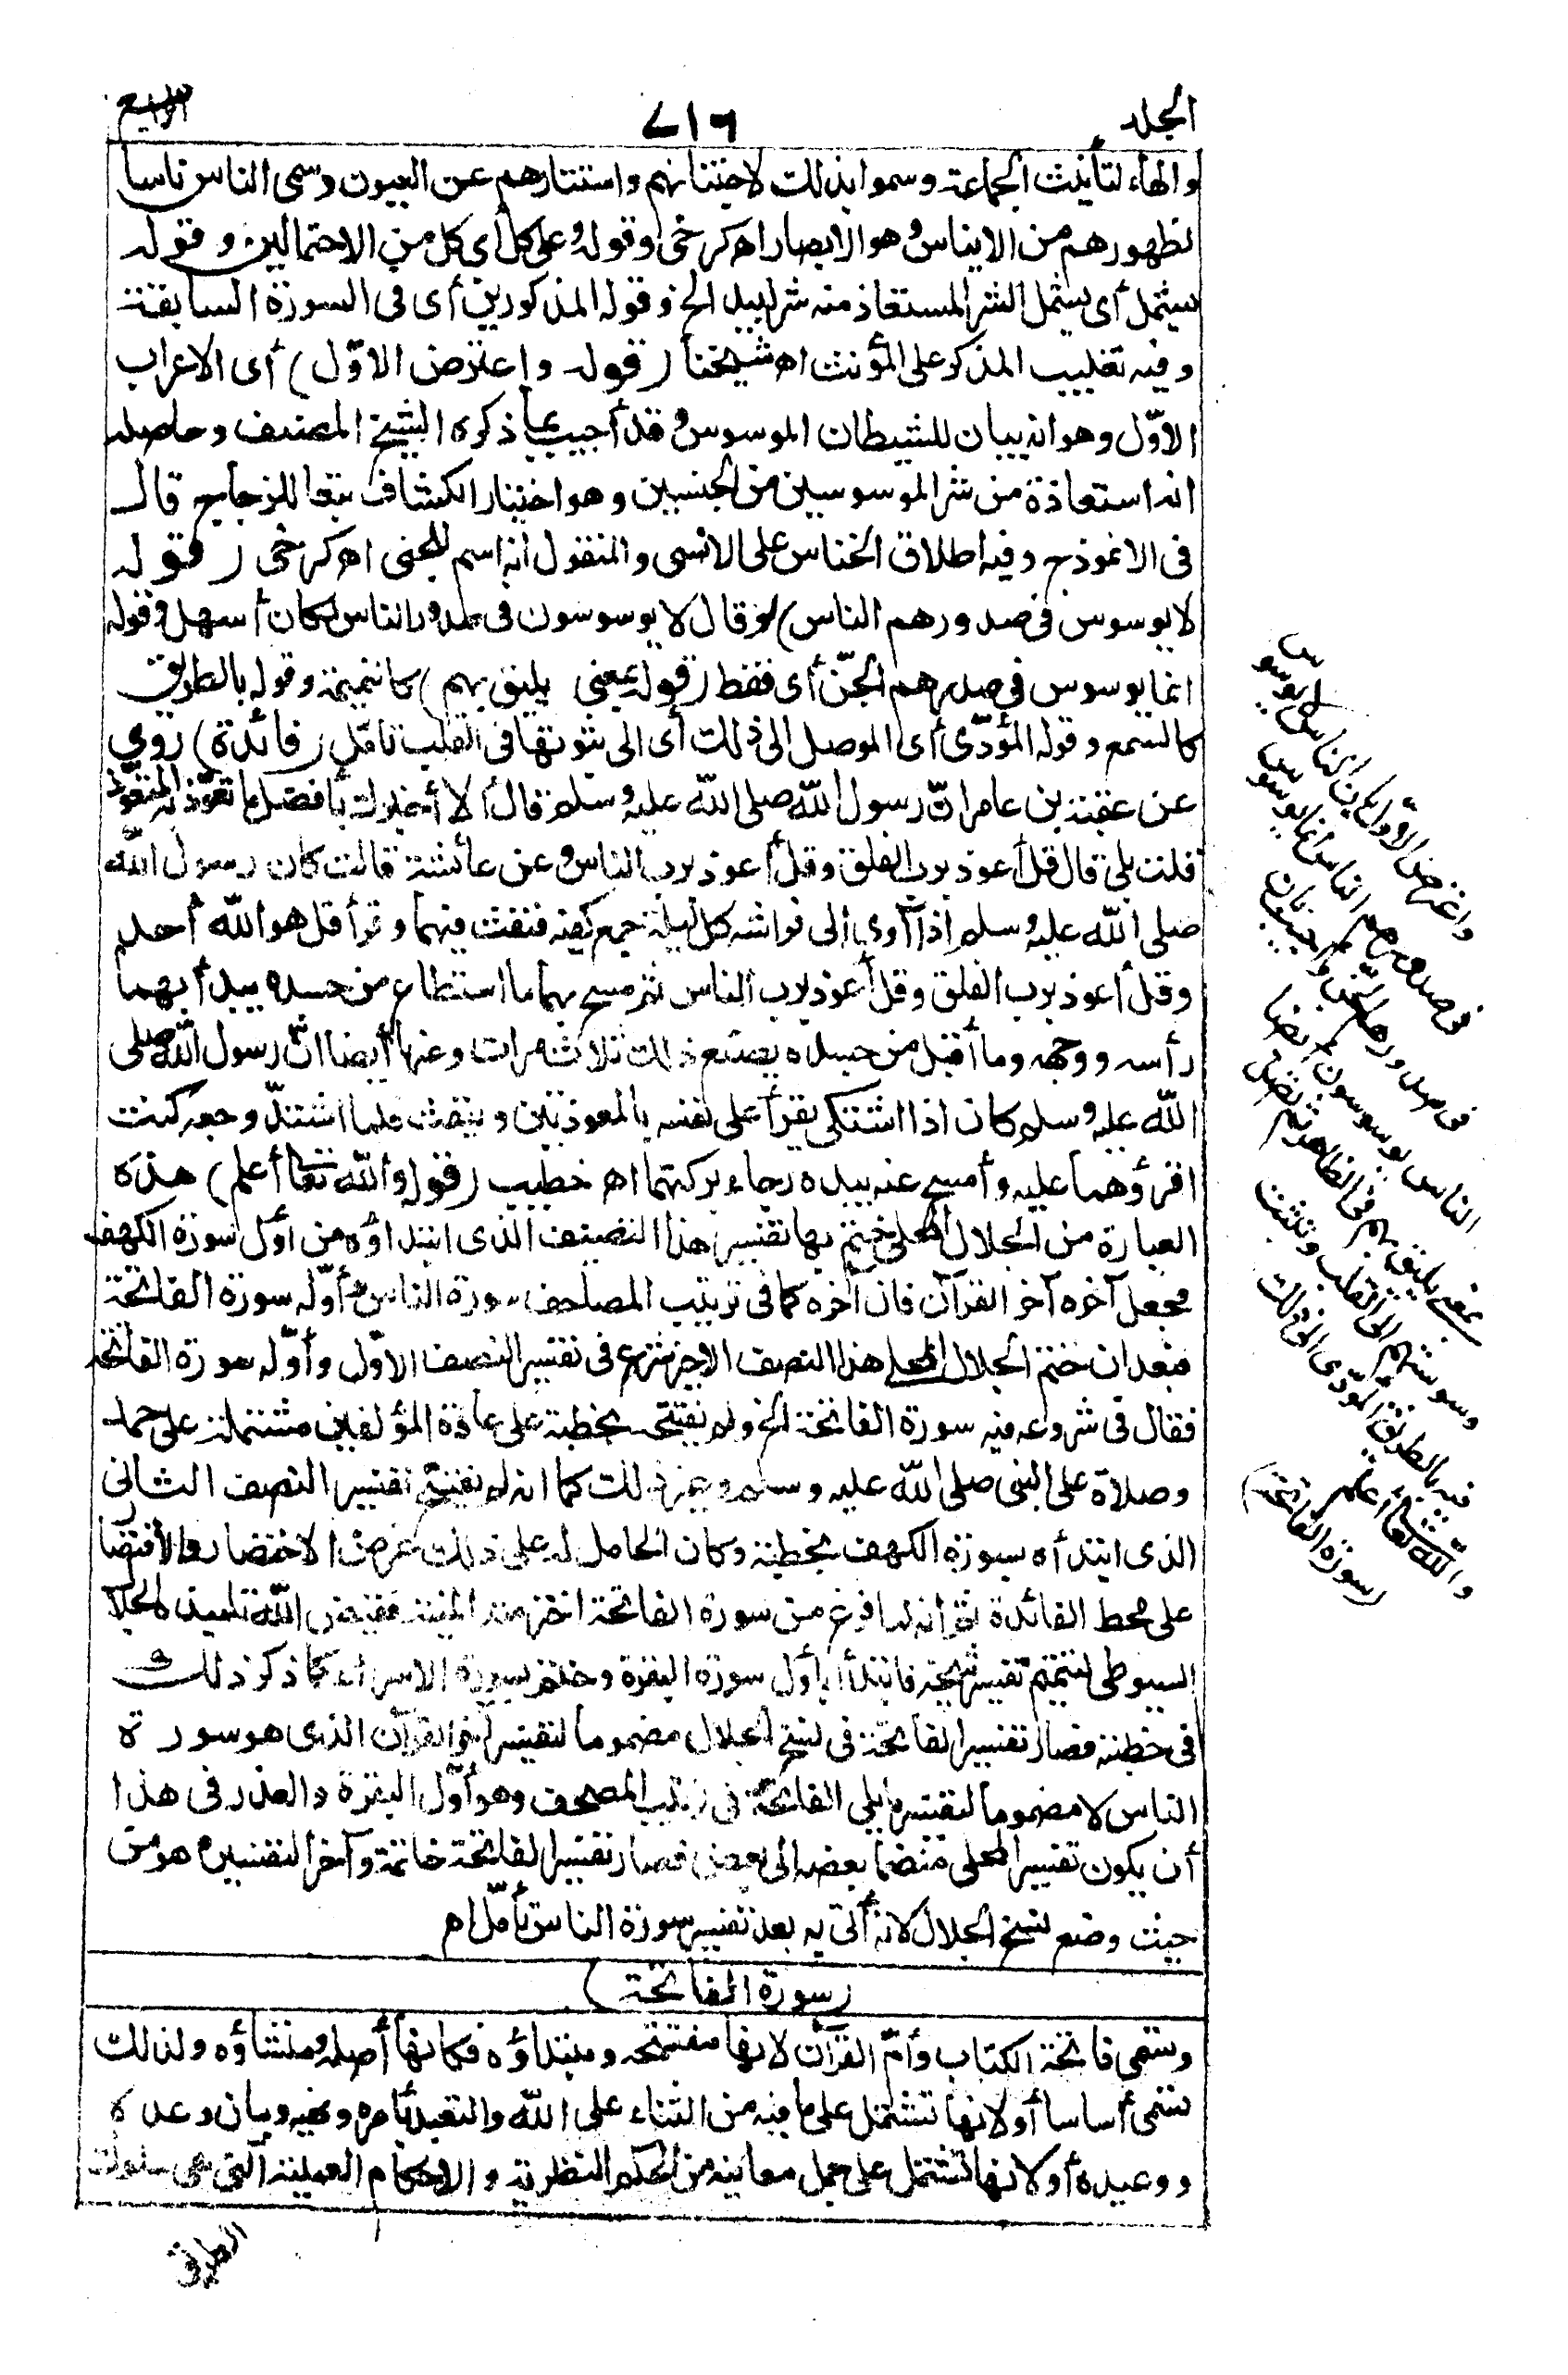 الجلد
٧١٦
الرابع
والهاء لتأنيث الجماعة وسموا بذلك لاجتنانهم واستتارهم عن العيون وسمى الناس ناسا
لظهورهم من الايناس وهو الابصار اه كرخى وقوله وعلى كل أى كل من الاحتمالين وقوله
يشمل أى يشمل الشر المستعاذ منه شر لبيد الخ وقوله المذكورين أى فى السورة السابقة
وفيه تغليب المذكر على المؤنث اه شيخنا (قوله واعترض الاوّل) أى الاعراب
الاوّل وهو انه بيان للشيطان الموسوس وقد أجيب بما ذكره الشيخ المصنف وحاصله
انه استعاذة من شر الموسوسين من الجنسين وهو اختيار الكشاف تبعا للزجاج قال
فى الانموذج وفيه اطلاق الخناس على الانسى والمنقول أنه اسم للجنى اه كرخى (قوله
لا يوسوس فى صدورهم الناس) لو قال لا يوسوسون فى صدور الناس لكان أسهل وقوله
انما يوسوس فى صدورهم الجنّ أى فقط (قوله بمعنى يليق بهم) كالنميمة وقوله بالطريق
كالسمع وقوله المؤدّى أى الموصل الى ذلك أى الى ثبوتها فى القلب تامّل (فائدة) روي
عن عقبة بن عامر انّ رسول الله صلى الله عليه وسلم قال ألا أخبرك بأفضل ما تعوّذ به المتعوّذ
قلت بلى قال قل أعوذ برب الفلق وقل أعوذ برب الناس وعن عائشة قالت كان رسول الله
صلى الله عليه وسلم اذا آوى الى فراشه كل ليلة جمع كفيه فنفث فيهما وقرأ قل هو الله أحد
وقل أعوذ برب الفلق وقل أعوذ برب الناس ثم مسح بهما ما استطاع من جسده يبدأ بهما
رأسه ووجهه وما أقبل من جسده يصنع ذلك ثلاث مرات وعنها أيضا انّ رسول الله صلى
الله عليه وسلم كان اذا اشتكى يقرأ على نفسه بالمعوذتين وينفث فلما اشتدّ وجعه كنت
اقرؤهما عليه وأمسح عنه بيده رجاء بركتهما اه خطيب (قوله والله تعا أعلم) هذه
العبارة من الجلال المحلى ختم بها تفسير هذا النصف الذى ابتداؤه من أول سورة الكهف
فجعل آخره آخر القرآن فان آخره كما فى ترتيب المصاحف سورة الناس وأوّله سورة الفاتحة
فبعد ان ختم الجلال المحلى هذا النصف الاخير شرع فى تفسير النصف الاوّل وأوّله سورة الفاتحة
فقال فى شروعه فيه سورة الفاتحة الخ ولم يفتتحه بخطبة على عادة المؤلفين مشتملة على حمد
وصلاة على النبى صلى الله عليه وسلم وغير ذلك كما انه لم يفتتح تفسير النصف الثانى
الذى ابتدأه بسورة الكهف بخطبة وكان الحامل له على ذلك غرض الاختصار والاقتصا
على محط الفائدة ثم انه لما فرغ من سورة الفاتحة اخترمته المنية فقيض الله تلميذه الجلال
السيوطى لتتميم تفسير شيخه فابتدأ بأول سورة البقرة وختم بسورة الاسراء كما ذكر ذلك
فى خطبته فصار تفسير الفاتحة فى نسخ الجلال مضموما لتفسير آخر القرآن الذى هو سورة
الناس لا مضموما لتفسير ما يلى الفاتحة فى ترتيب المصحف وهو أوّل البقرة والعذر فى هذا
أن يكون تفسير المحلى منضما بعضه الى بعض فصار تفسير الفاتحة خاتمة وآخر التفسيره هو من
حيث وضع نسخ الجلال لانه أتى به بعد تفسير سورة الناس تأمّل اه
(سورة الفاتحة)
وتسمى فاتحة الكتاب وأمّ القرآن لانها مفتتحه ومبتداؤه فكانها أصله ومنشاؤه ولذلك
تسمى أساسا أو لانها تشتمل على ما فيه من الثناء على الله والتعبد بأمره ونهيه وبيان وعده
ووعيده أو لانها تشتمل على جمل معانيه من الحكم النظرية والاحكام العملية التى هى سلوك
الطريق
واعترض الاوّل بان الناس لا يوسوس
فى صدورهم الناس انما يوسوس
فى صدورهم الجنّ واجيب بان
الناس يوسوسون ايضا
بمعنى يليق بهم فى الظاهر ثم تصل
وسوستهم الى القلب وتثبت
فيه بالطريق المؤدّى الى ذلك
والله تعا أعلم
(سورة الفاتحة)